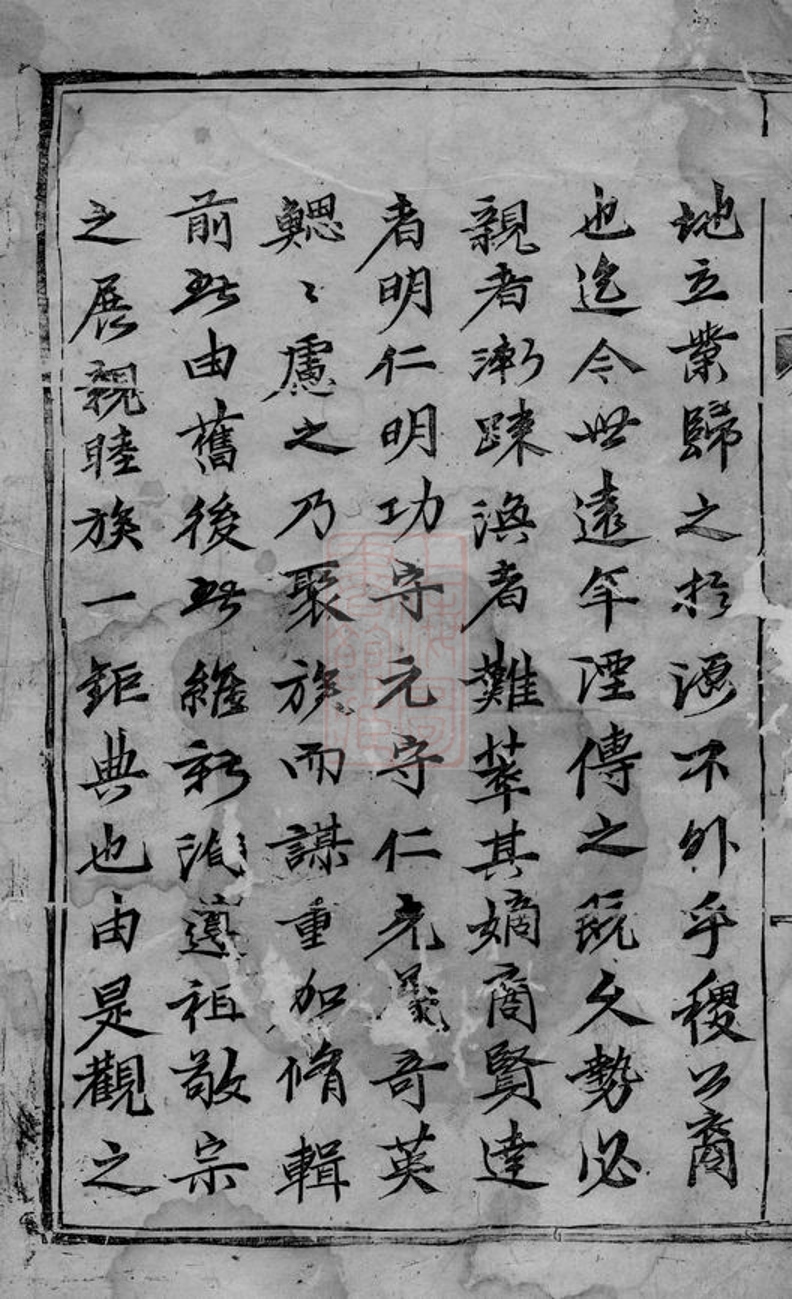 地立業歸之於源不外乎稷公裔
也迄今世遠年湮傳之既久勢必
親者漸疎渙者難萃其嫡裔賢達
者明仁明功守元守仁光晟奇英
鰓〻慮之乃聚族而謀重加脩輯
前此由舊後此維新洵遵祖敬宗
之展親睦族一鉅典也由是觀之